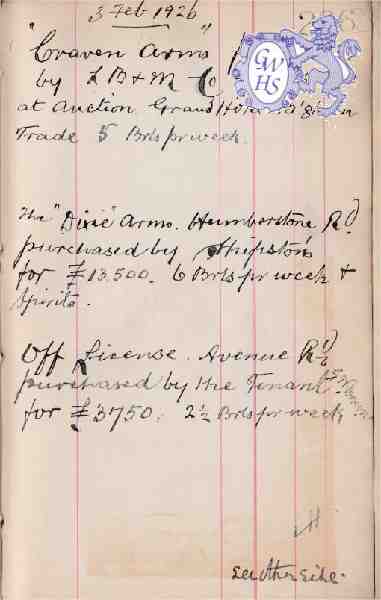 3 Feb 1926
"Craven Arms"
by L B & M Co
at Auction Grand Hotel
Trade 5 Brls pr week.
GW
HS
The "Dixie" Arms. Humberstone Rd
purchased by Shipstons
for £13,500. 6 Brls pr week &
Spirits.
Off License. Avenue Rd
purchased by the Tenant
for £3750. 2½ Brls pr week
see other side.